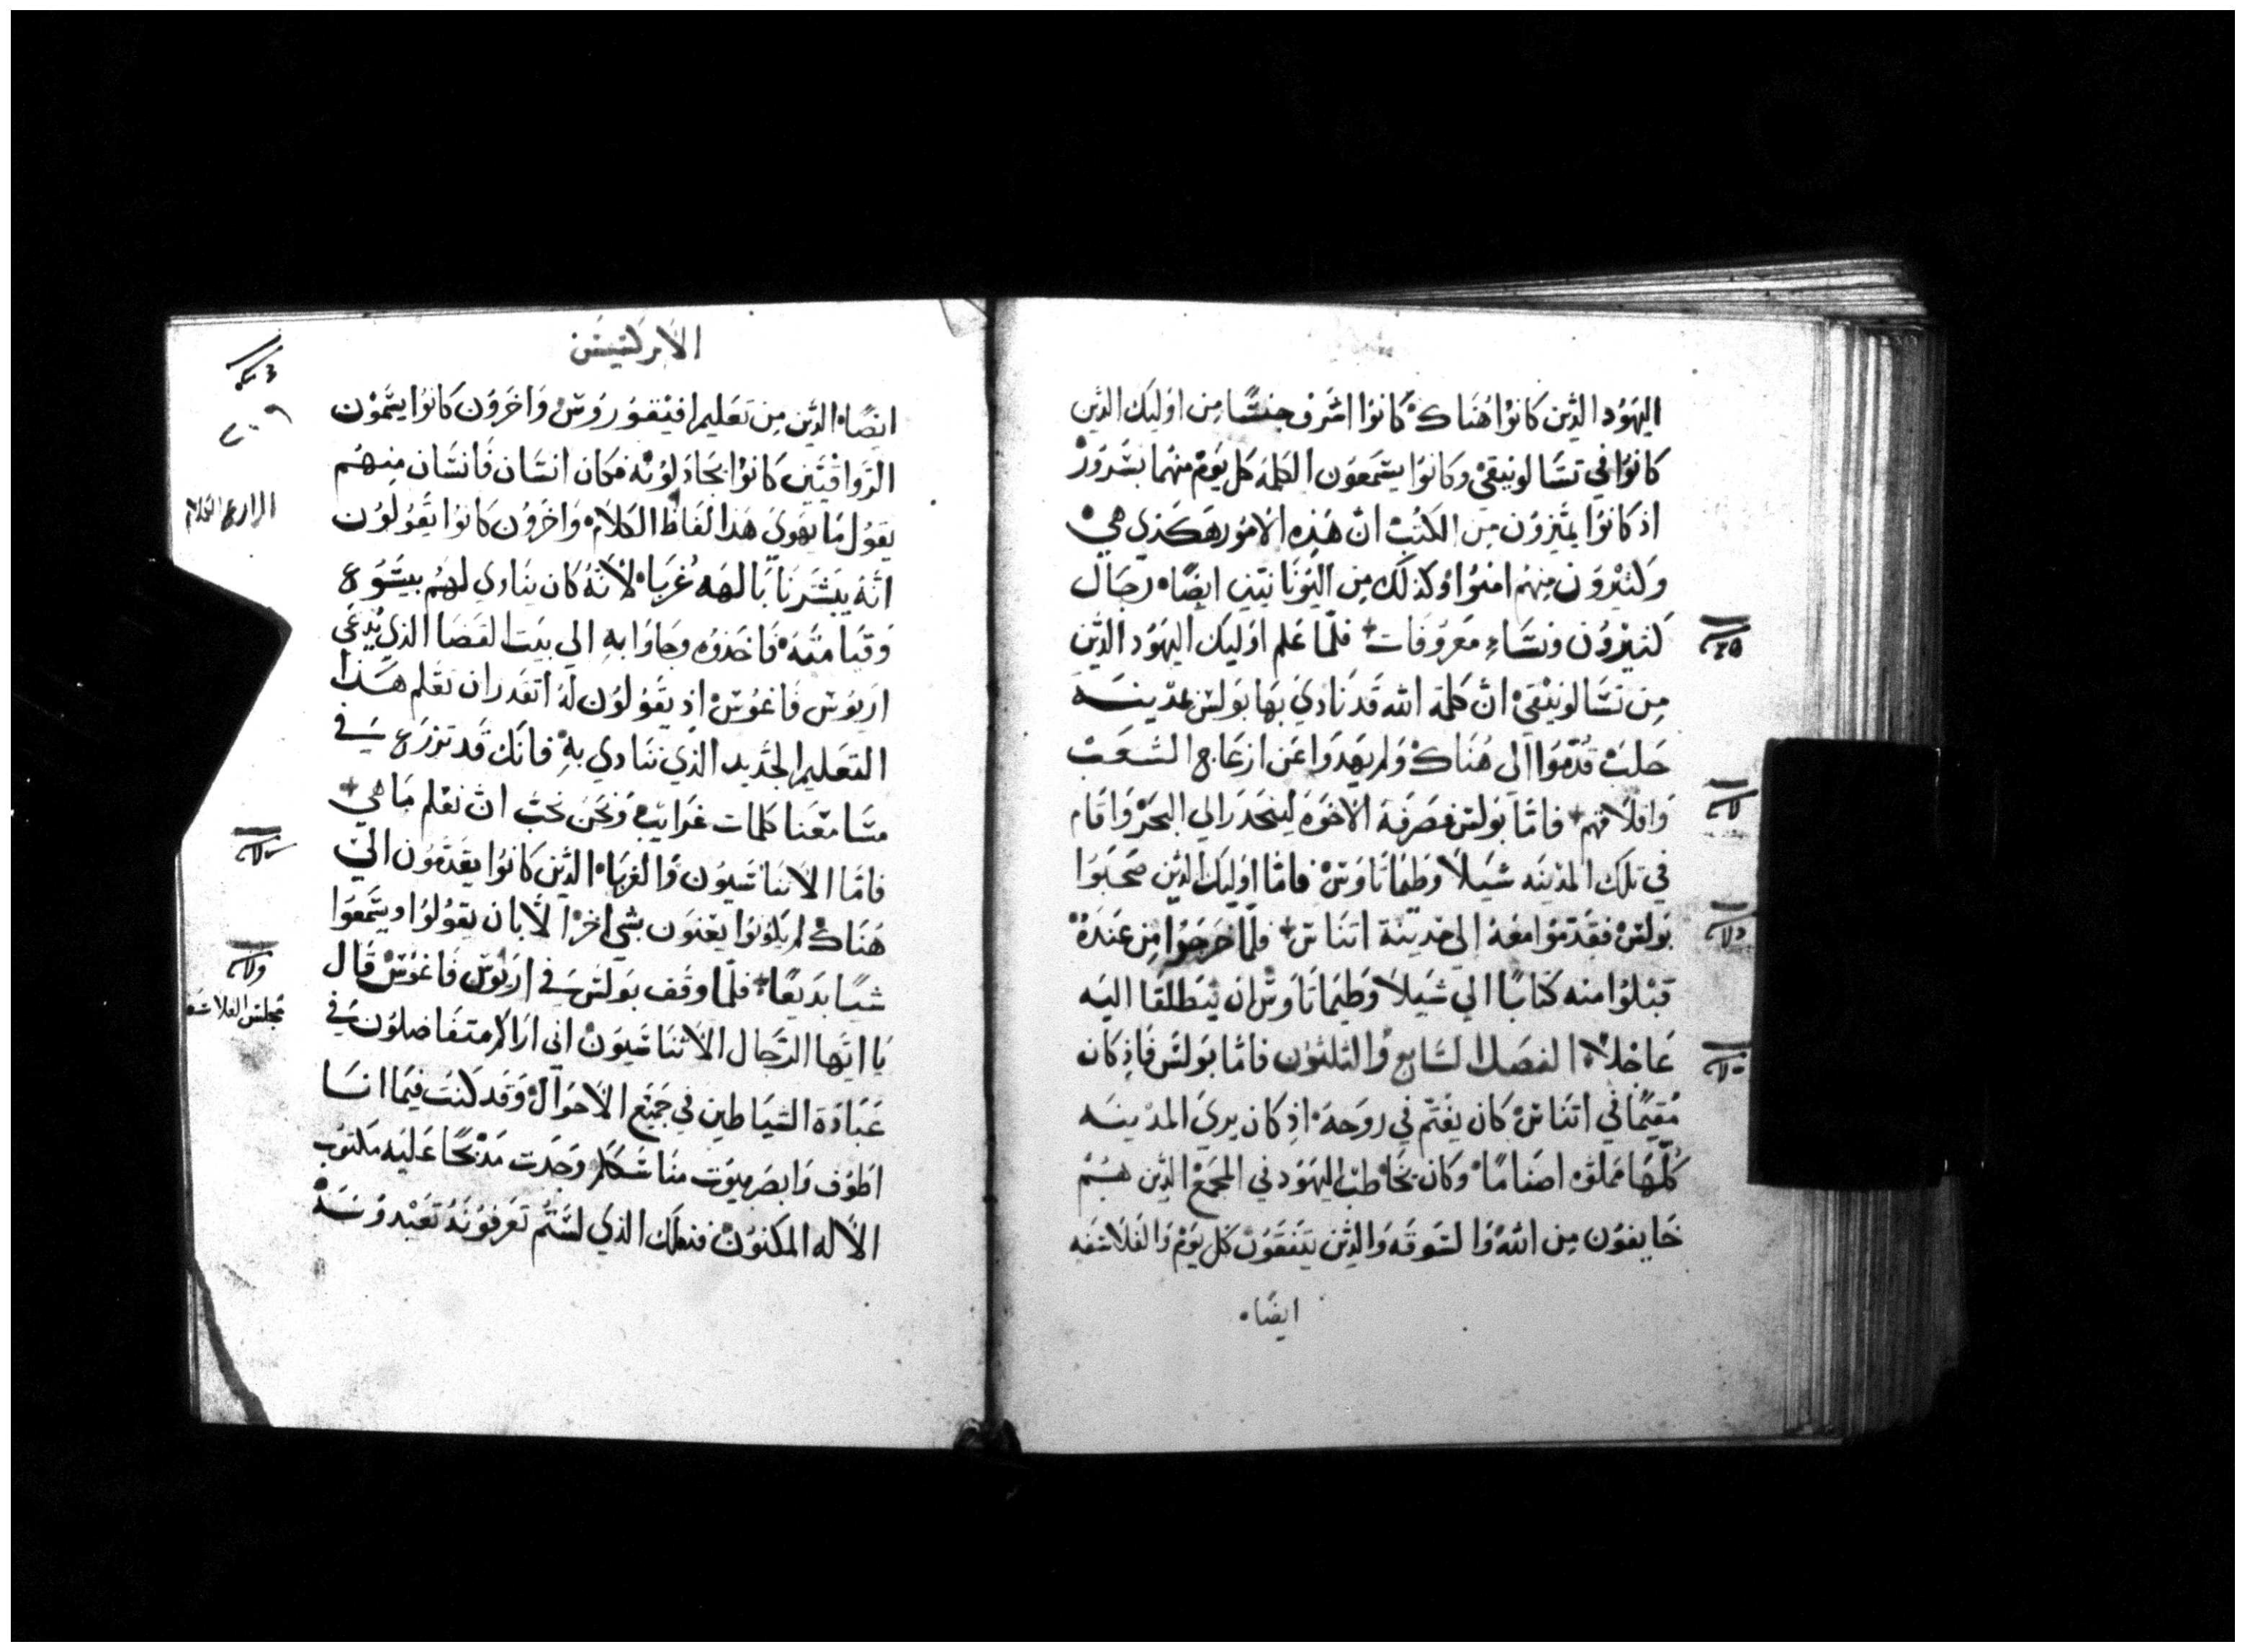 اليهَوُد الذين كانوُا هُنَاك كَانوُا اشرف جنسًا مِن اوُليك الذين
كانوُا في تسَالونيقي وكانوُا يسَمعَوُن الكلمة كل يَوم منهُما بسَروُر
اذ كانوُا يميزوُن مِن الكتبْ انّ هَذِه الامُور هَكذي هي
وَكثيْروُن مِنهُم امنوُا وكذلكَ مِن اليوُنَانيين ايضًا رجَال
كثيْروُن ونسَاء مَعروُفات فلمّا عَلم اوُليك اليهَوُد الذين
مِن تسَالونيقي انّ كلمة الله قد نادي بهَا بَولسْ بمدْينـة
حَلبْ قدّموُا الي هُنَاك وَلم يهَدوَا عَن ازعَاج الشعَبْ
وَاقلاقهم فامّا بَولس فصَرفهَ الاخوَه لينحدَر الي البحَرْ وَاقام
في تلك المدْينه شيَلا وَطيماتاوسْ فامّا اوُليك الذين صَحبَوُا
بَولسْ فقدّموُا معَهُ إلي مدْينة اتناسْ فلمّا خرَجوُا مِن عَندهُ
قبْلوُا منه كتابًا الي شيَلا وَطيماتاوس ان ينطلقا اليَه
عَاجْلا الفصَل السَابع وَالثلثوُن فامّا بَولسْ فاذ كان
مُقيمًا في اتناسْ كان يغتم في روُحهَ اذ كان يري المدْينـه
كلّهَا مَملوّه اصنامًا وَكان يخَاطب اليهَوُد في المجمَعْ الذين هـُم
خَايفوُن مِن الله وَالسَوقه وَالذين يَتفقوُن كل يَوم وَالفلاسفه
ايضًا
الابركسيس
ايضًا الذين مِن تعَليم افيْقوُروُسْ وَاخروُن كانوُا يسَمّوْن
الروَاقيّين كانوُا يجَادلوُنه فكان انسَان فانسَان مِنهـُم
يقوُل مَا يهَوي هَذا لفاط الكلام وَاخروُن كانوُا يقوُلوُن
انّه يبَشرنَا بَالهَه غُربَا لانهُ كان ينادي لهُم بيسَوُع
وَقيَامَته فاخذوُه وجاوَا بهِ الي بيت القضَا الذي يُدعَي
اريوُس فاغوُسْ اذ يقوُلوُن لهُ اتقدر ان تعَلم هـَذا
التعَليم الجَديد الذي تنادي بهِ فانكّ قد تزرَع في
مسَامعَنا كلمات غرايب وَنحَن نحبْ انّ نعْلم مَا هي
فامّا الاتناسيوُن وَالغربَا الذين كانوُا يقدَموُن الي
هَناك لم يكوُنوُا يعْنوَن بشي اخر الّا بان يقوُلوُا ويسَمعَوا
شيًا بديعًا فلمّا وقف بَولسَ في اريوُسَ فاغوُسْ قال
يَا ايّهَا الرّجال الاتناسَيوُن اني ارَاكم متفاضلوُن في
عَبادَة الشيَاطين في جميْع الاحوَال وَقد كنتُ فيمَا انـَا
اطوُف وَابصَر بيوُت مناسَككم وَجدت مذبحًا عَليَه مَكتوُب
الالَه المكنوُن فذلك الذي لسَتُم تعَرفوُنهُ تعَبْدوُنهَ
٢٠٩